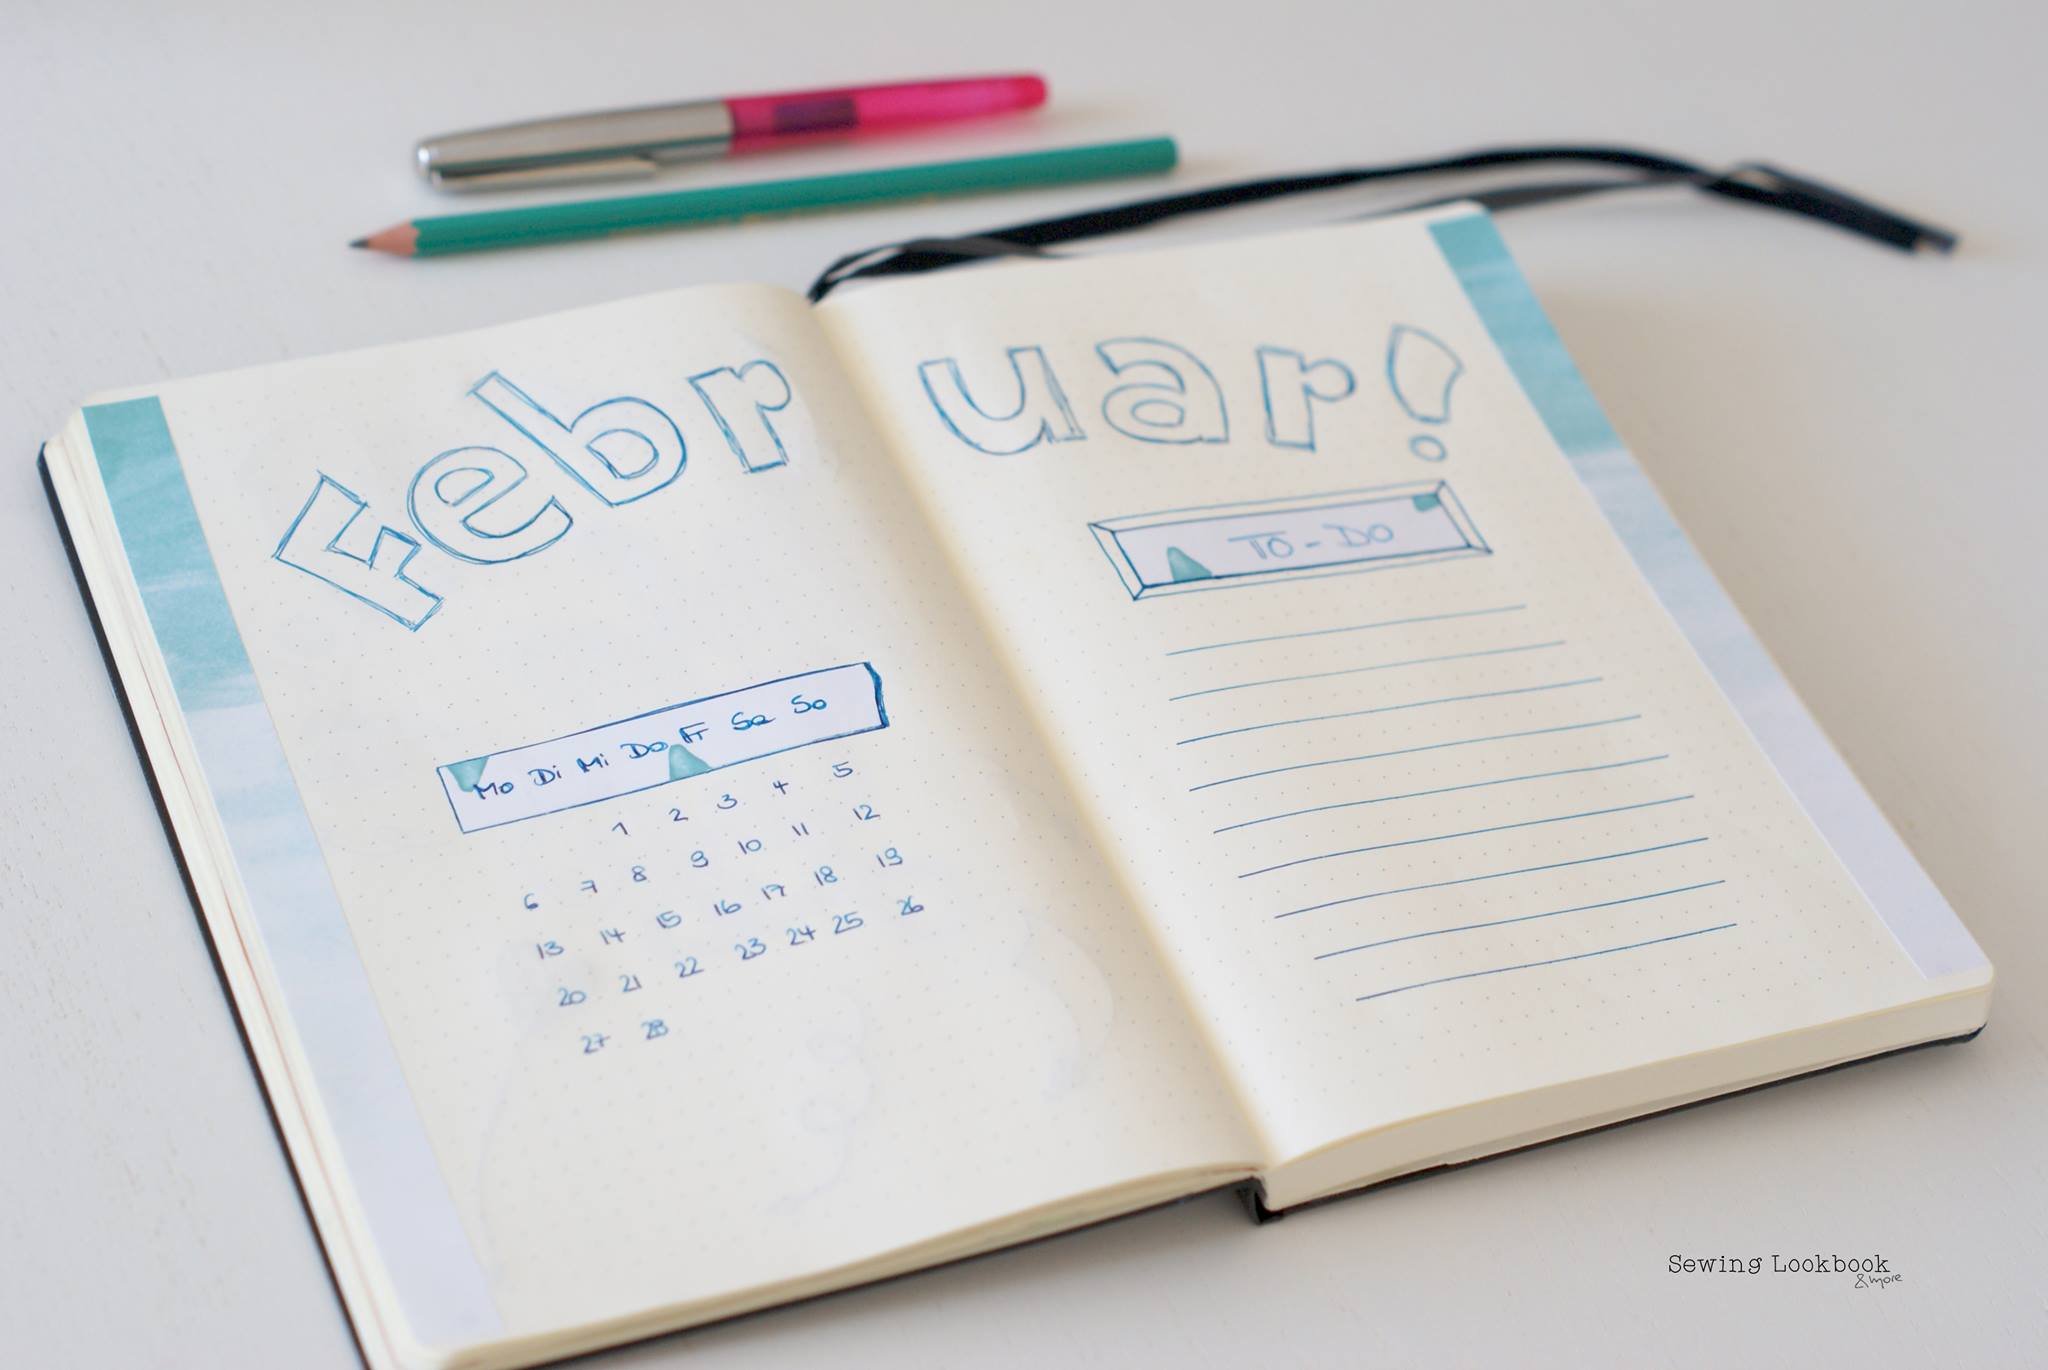 Februar!
Mo Di Mi Do Fr Sa So
1 2 3 4 5
6 7 8 9 10 11 12
13 14 15 16 17 18 19
20 21 22 23 24 25 26
27 28
TO-DO
Sewing Lookbook
&more